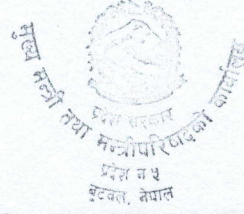 मुख्य मन्त्री तथा मन्त्रीपरिषदको कार्यालय
प्रदेश सरकार
प्रदेश नं ५
बुटवल, नेपाल